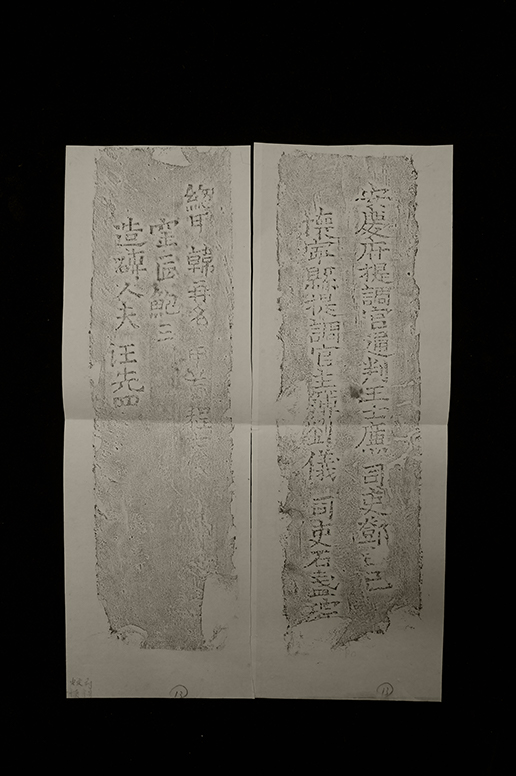 安慶府提調官通判王士廉 司吏鄧
懷寧縣提調官主簿劉儀 司吏石孟
總甲 韓再名 甲首 程
窑匠鮑三
造磚人夫汪先四
13